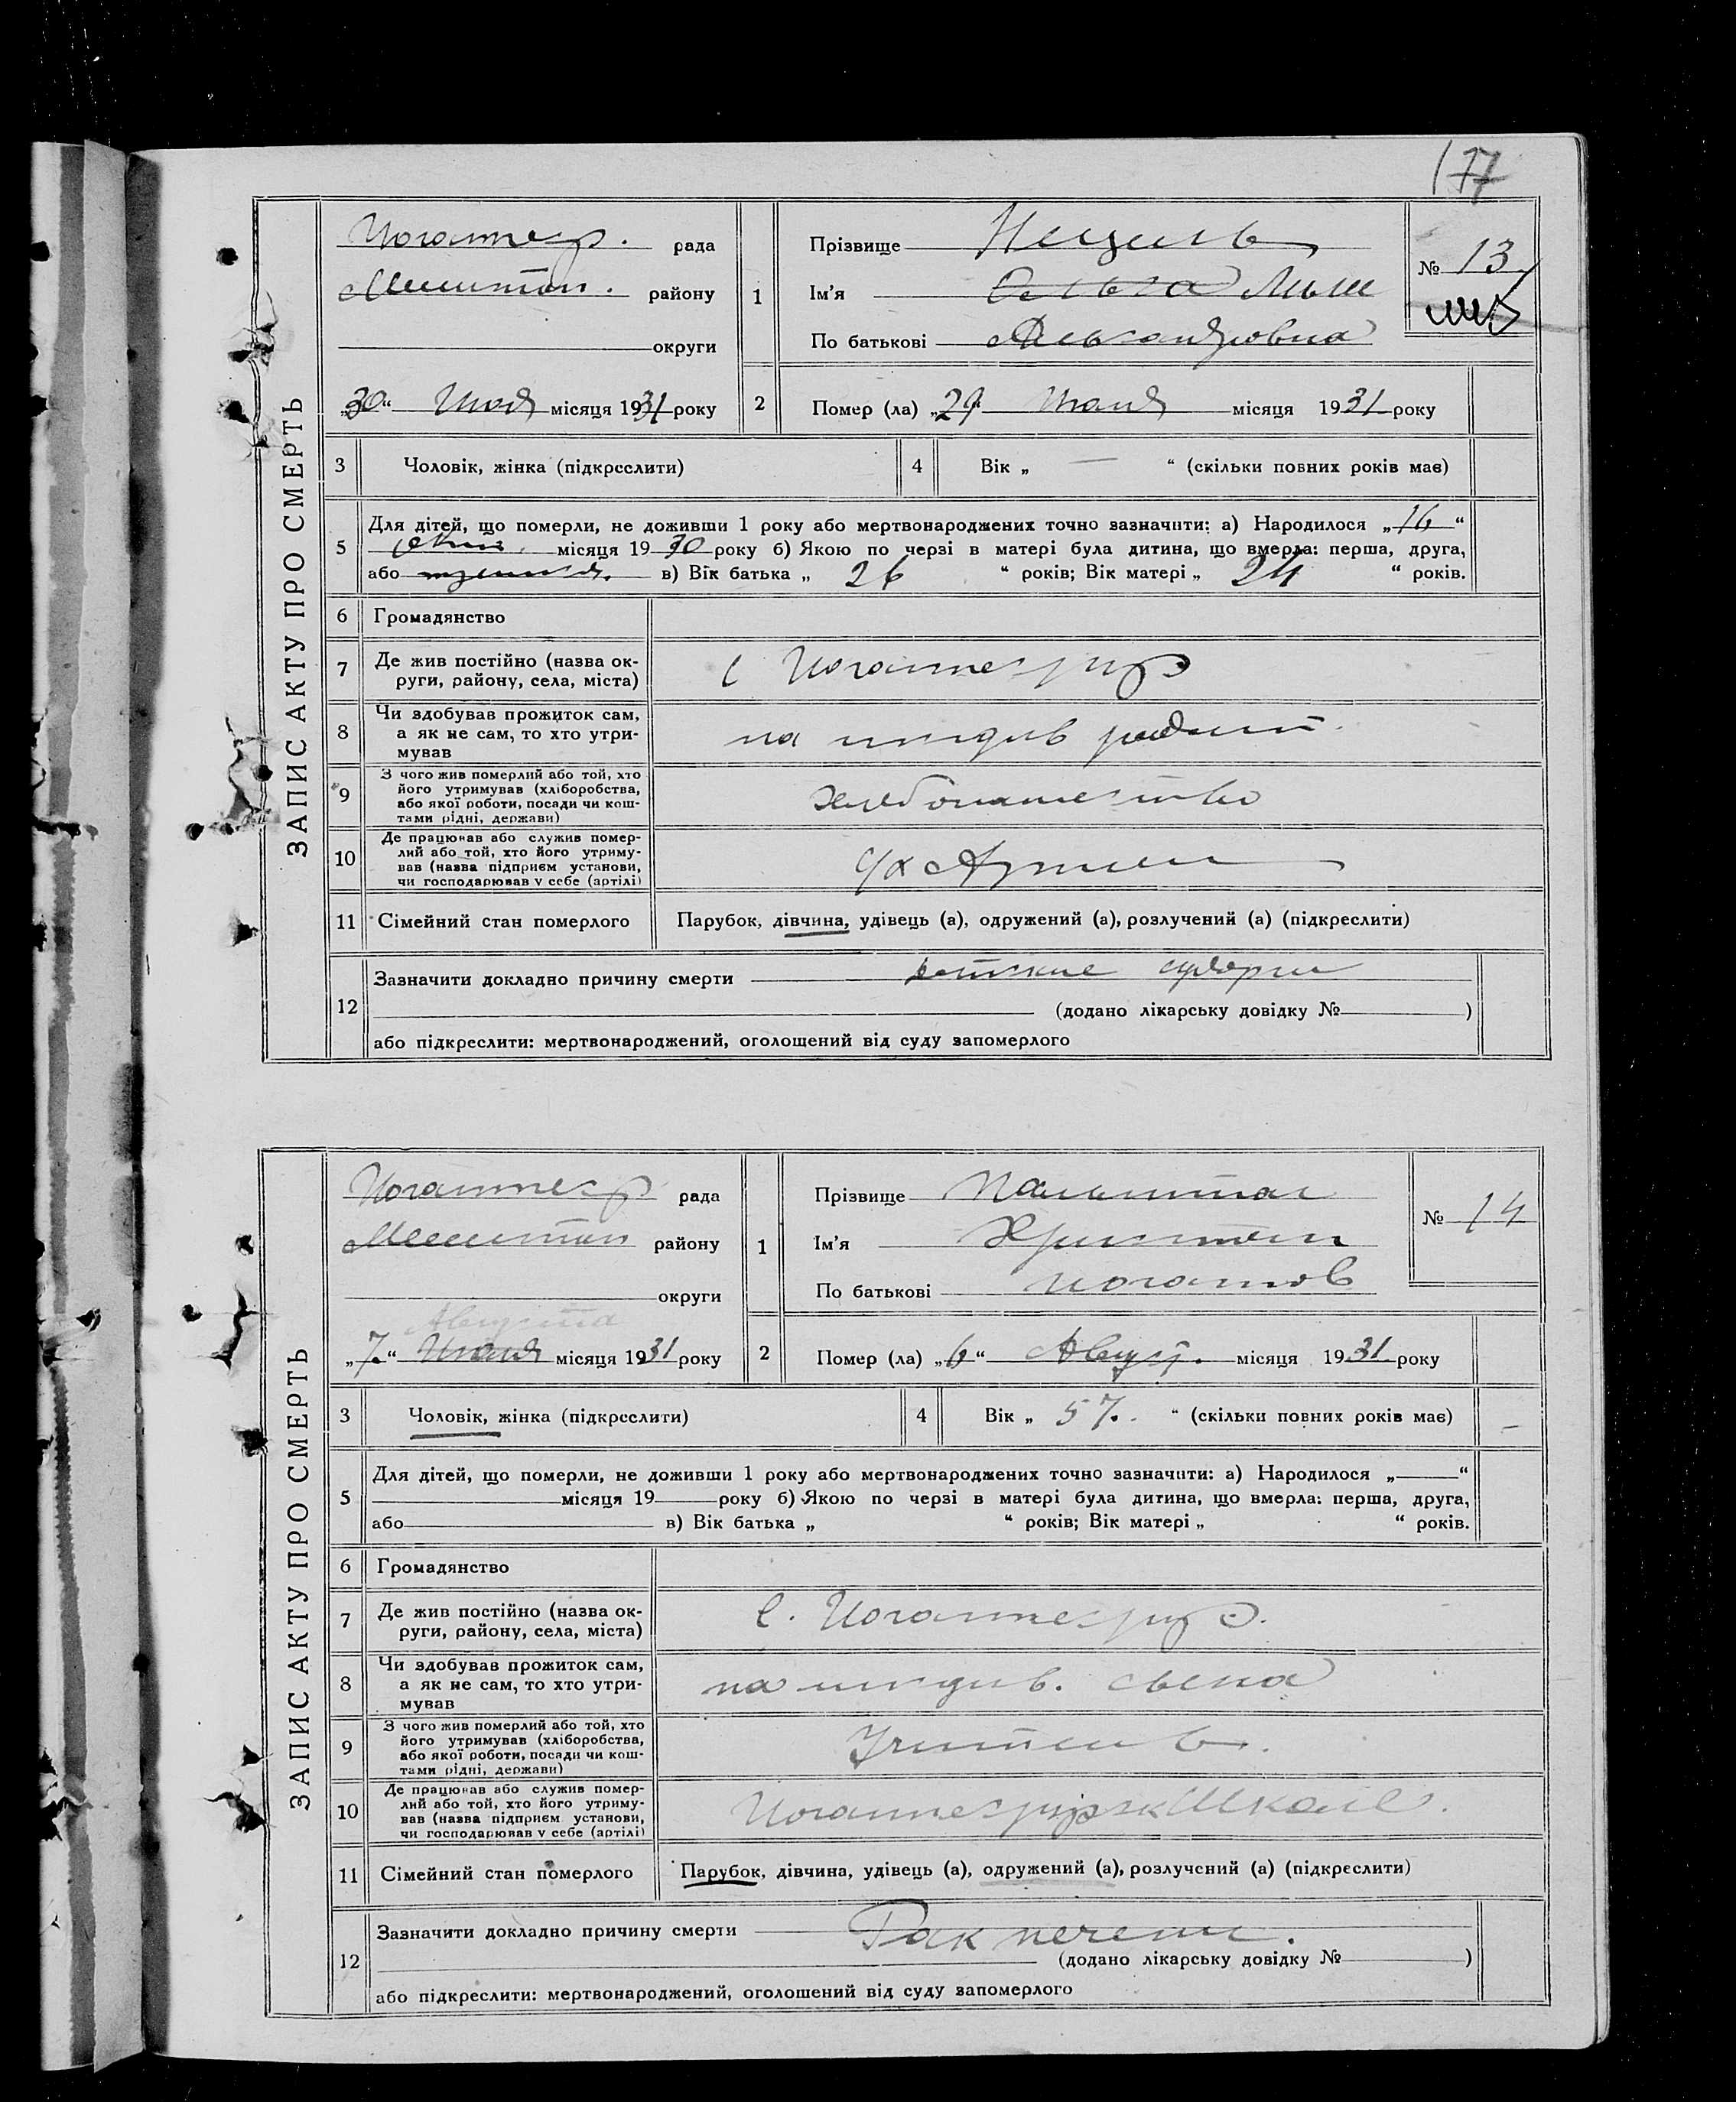 177
ЗАПИС АКТУ ПРО СМЕРТЬ
рада
району
округи
„30“ Июля місяця 1931 року
1
Прізвище Нецель
Ім'я Ольга
По батькові Александровна
№ 13
2
Помер (ла) „29“ Июля місяця 1931 року
3
Чоловік, жінка (підкреслити)
4
Вік „ — “ (скільки повних років має)
5
Для дітей, що померли, не доживши 1 року або мертвонароджених точно зазначити: а) Народилося „16“
місяця 1930 року б) Якою по черзі в матері була дитина, що вмерла: перша, друга,
або в) Вік батька „ 26 “ років; Вік матері „ 24 “ років.
6
Громадянство
7
Де жив постійно (назва ок-
руги, району, села, міста)
с Иоганнесруэ
8
Чи здобував прожиток сам,
а як не сам, то хто утри-
мував
на иждив родит.
9
З чого жив померлий або той, хто
його утримував (хліборобства,
або якої роботи, посади чи кош-
тами рідні, держави)
хлебопашество
10
Де працював або служив помер-
лий або той, хто його утриму-
вав (назва підприєм установи,
чи господарював у себе (артілі)
с/х Артели
11
Сімейний стан померлого
Парубок, дівчина, удівець (а), одружений (а), розлучений (а) (підкреслити)
12
Зазначити докладно причину смерти детские судорги
(додано лікарську довідку № )
або підкреслити: мертвонароджений, оголощений від суду запомерлого
ЗАПИС АКТУ ПРО СМЕРТЬ
рада
району
округи
Августа
„7.“ Июля місяця 1931 року
1
Прізвище
Ім'я Христиан
По батькові
№ 14
2
Помер (ла) „6“ Август. місяця 1931 року
3
Чоловік, жінка (підкреслити)
4
Вік „ 57. “ (скільки повних років має)
5
Для дітей, що померли, не доживши 1 року або мертвонароджених точно зазначити: а) Народилося „ “
місяця 19 року б) Якою по черзі в матері була дитина, що вмерла: перша, друга,
або в) Вік батька „ “ років; Вік матері „ “ років.
6
Громадянство
7
Де жив постійно (назва ок-
руги, району, села, міста)
с. Иоганнесруэ.
8
Чи здобував прожиток сам,
а як не сам, то хто утри-
мував
на иждив. сына
9
З чого жив померлий або той, хто
його утримував (хліборобства,
або якої роботи, посади чи кош-
тами рідні, держави)
Учитель.
10
Де працював або служив помер-
лий або той, хто його утриму-
вав (назва підприєм установи,
чи господарював у себе (артілі)
Школе.
11
Сімейний стан померлого
Парубок, дівчина, удівець (а), одружений (а), розлучений (а) (підкреслити)
12
Зазначити докладно причину смерти Рак печени.
(додано лікарську довідку № )
або підкреслити: мертвонароджений, оголошений від суду запомерлого